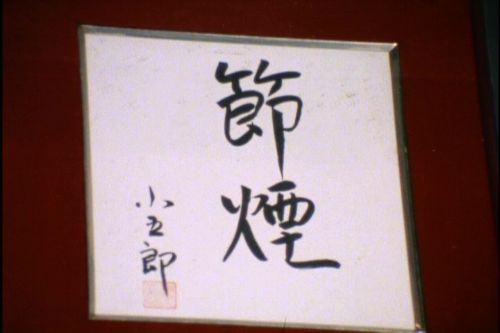 節煙
小五郎